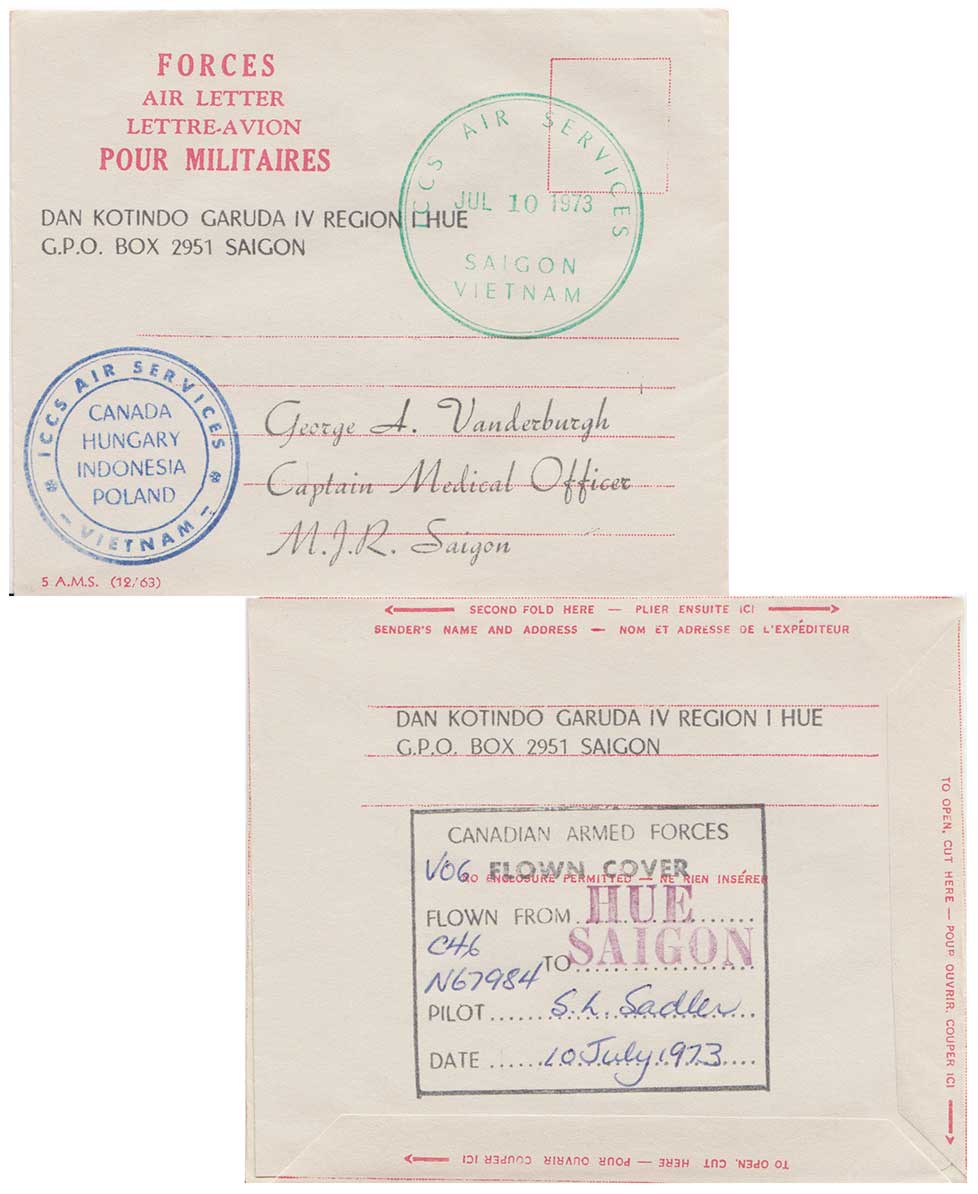 FORCES
AIR LETTER
LETTRE-AVION
POUR MILITAIRES
DAN KOTINDO GARUDA IV REGION I HUE
G.P.O. BOX 2951 SAIGON
ICCS AIR SERVICES
JUL 10 1973
SAIGON
VIETNAM
ICCS AIR SERVICES
CANADA
HUNGARY
INDONESIA
POLAND
- VIETNAM -
George A. Vanderburgh
Captain Medical Officer
M.J.R. Saigon
5 A.M.S. (12/63)
SECOND FOLD HERE — PLIER ENSUITE ICI
SENDER'S NAME AND ADDRESS — NOM ET ADRESSE DE L'EXPÉDITEUR
DAN KOTINDO GARUDA IV REGION I HUE
G.P.O. BOX 2951 SAIGON
CANADIAN ARMED FORCES
V06 FLOWN COVER
NO ENCLOSURE PERMITTED — NE RIEN INSÉRER
FLOWN FROM HUE
C46
N67984 TO SAIGON
PILOT S.L. Sadler
DATE 10 July 1973
TO OPEN, CUT HERE — POUR OUVRIR, COUPER ICI
TO OPEN, CUT HERE — POUR OUVRIR COUPER ICI